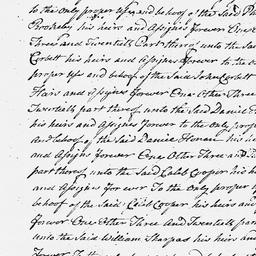 to the Only proper Use and behoof of the Said
Brokesby his heirs and Assigns forever One
Three and Twentieth Part thereof unto the Said
Corbett his heirs and Assigns forever to the
proper Use and behoof of the Said John Corbett
Heirs and Assigns forever One Other Three
Twentieth part thereof unto the Said Daniel
his heirs and Assigns forever to the Only prop
and behoof of the Said Daniel Honan his he
and Assigns forever One Other Three and
part thereof unto the Said Caleb Cooper his he
and Assigns for ever To the Only proper U
behoof of the Said Caleb Cooper his heirs and
forever One Other Three And Twentieth part
unto the Said William Sharpas his heirs and
forever To the Only proper and behoof